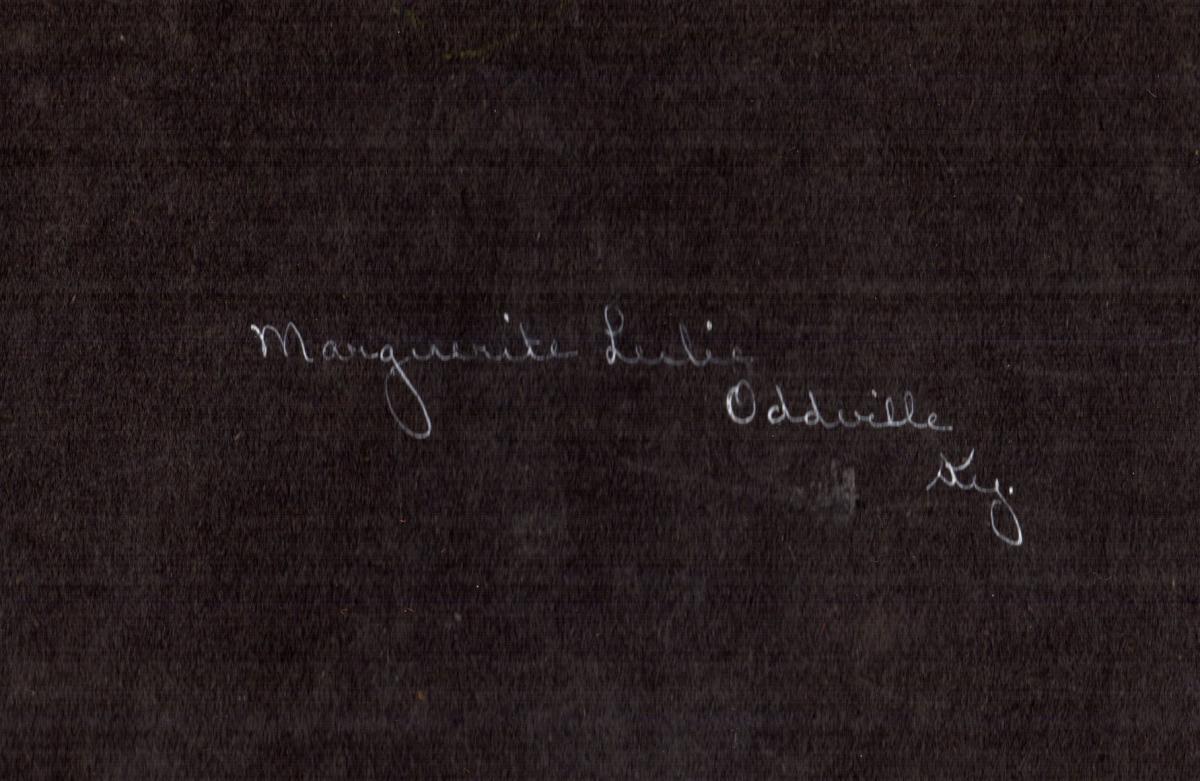 Marguerite Leslie
Oddville
Ky.